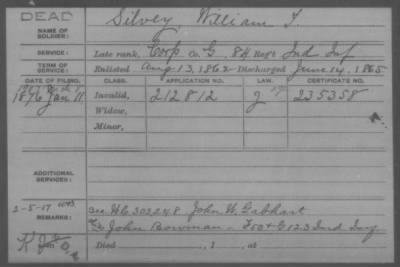 DEAD
NAME OF SOLDIER: Silvey William T
SERVICE: Late rank, Corp Co. G, 84 Reg't Ind Inf
TERM OF SERVICE: Enlisted Aug 13, 1862 Discharged June 14, 1865
DATE OF FILING. CLASS. APPLICATION NO. LAW. CERTIFICATE NO.
1876 Jan 11 Invalid, 212812 235358
Widow,
Minor,
ADDITIONAL SERVICES:
2-5-17
REMARKS: 303248 John W. Gabhart
John Bowman - G 123 Ind Inf
Died , 1 , at